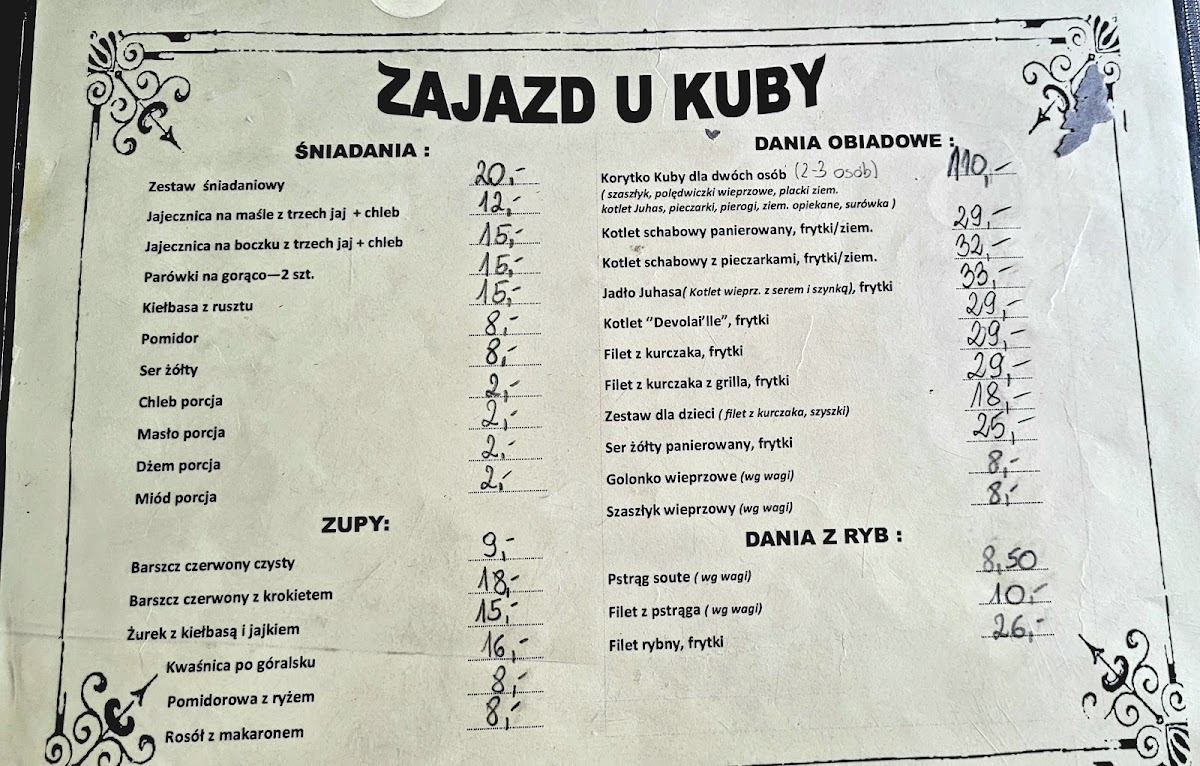 ZAJAZD U KUBY
ŚNIADANIA :
Zestaw śniadaniowy 20,-
Jajecznica na maśle z trzech jaj + chleb 12,-
Jajecznica na boczku z trzech jaj + chleb 15,-
Parówki na gorąco—2 szt. 15,-
Kiełbasa z rusztu 15,-
Pomidor 8,-
Ser żółty 8,-
Chleb porcja 2,-
Masło porcja 2,-
Dżem porcja 2,-
Miód porcja 2,-
ZUPY:
Barszcz czerwony czysty 9,-
Barszcz czerwony z krokietem 18,-
Żurek z kiełbasą i jajkiem 15,-
Kwaśnica po góralsku 16,-
Pomidorowa z ryżem 8,-
Rosół z makaronem 8,-
DANIA OBIADOWE :
Korytko Kuby dla dwóch osób (2-3 osób) 110,-
( szaszłyk, polędwiczki wieprzowe, placki ziem.
kotlet Juhas, pieczarki, pierogi, ziem. opiekane, surówka )
Kotlet schabowy panierowany, frytki/ziem. 29,-
Kotlet schabowy z pieczarkami, frytki/ziem. 32,-
Jadło Juhasa( Kotlet wieprz. z serem i szynką), frytki 33,-
Kotlet “Devolai’lle”, frytki 29,-
Filet z kurczaka, frytki 29,-
Filet z kurczaka z grilla, frytki 29,-
Zestaw dla dzieci ( filet z kurczaka, szyszki) 18,-
Ser żółty panierowany, frytki 25,-
Golonko wieprzowe (wg wagi) 8,-
Szaszłyk wieprzowy (wg wagi) 8,-
DANIA Z RYB :
Pstrąg soute ( wg wagi) 8,50
Filet z pstrąga ( wg wagi) 10,-
Filet rybny, frytki 26,-